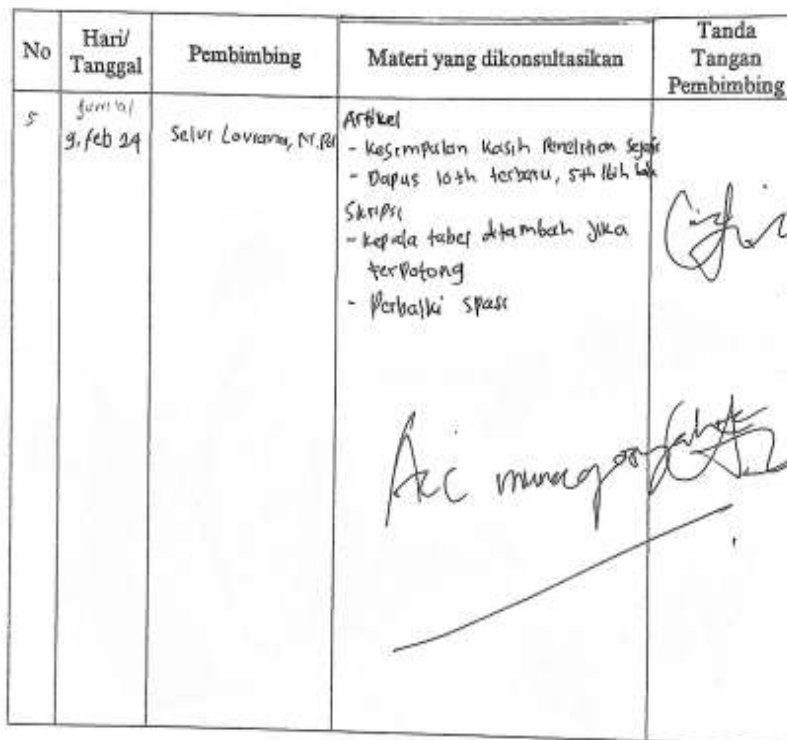 No
Hari/
Tanggal
Pembimbing
Materi yang dikonsultasikan
Tanda
Tangan
Pembimbing
5
Jum'at
9, Feb 24
Selvi Loviana, M.Pd
Artikel
- Kesimpulan kasih Penelitian
- Dapus 10 th terbaru, 5 th lbih baik
Skripsi
- kepala tabel ditambah jika
terpotong
- Perbaiki spasi
Acc munaqosyah